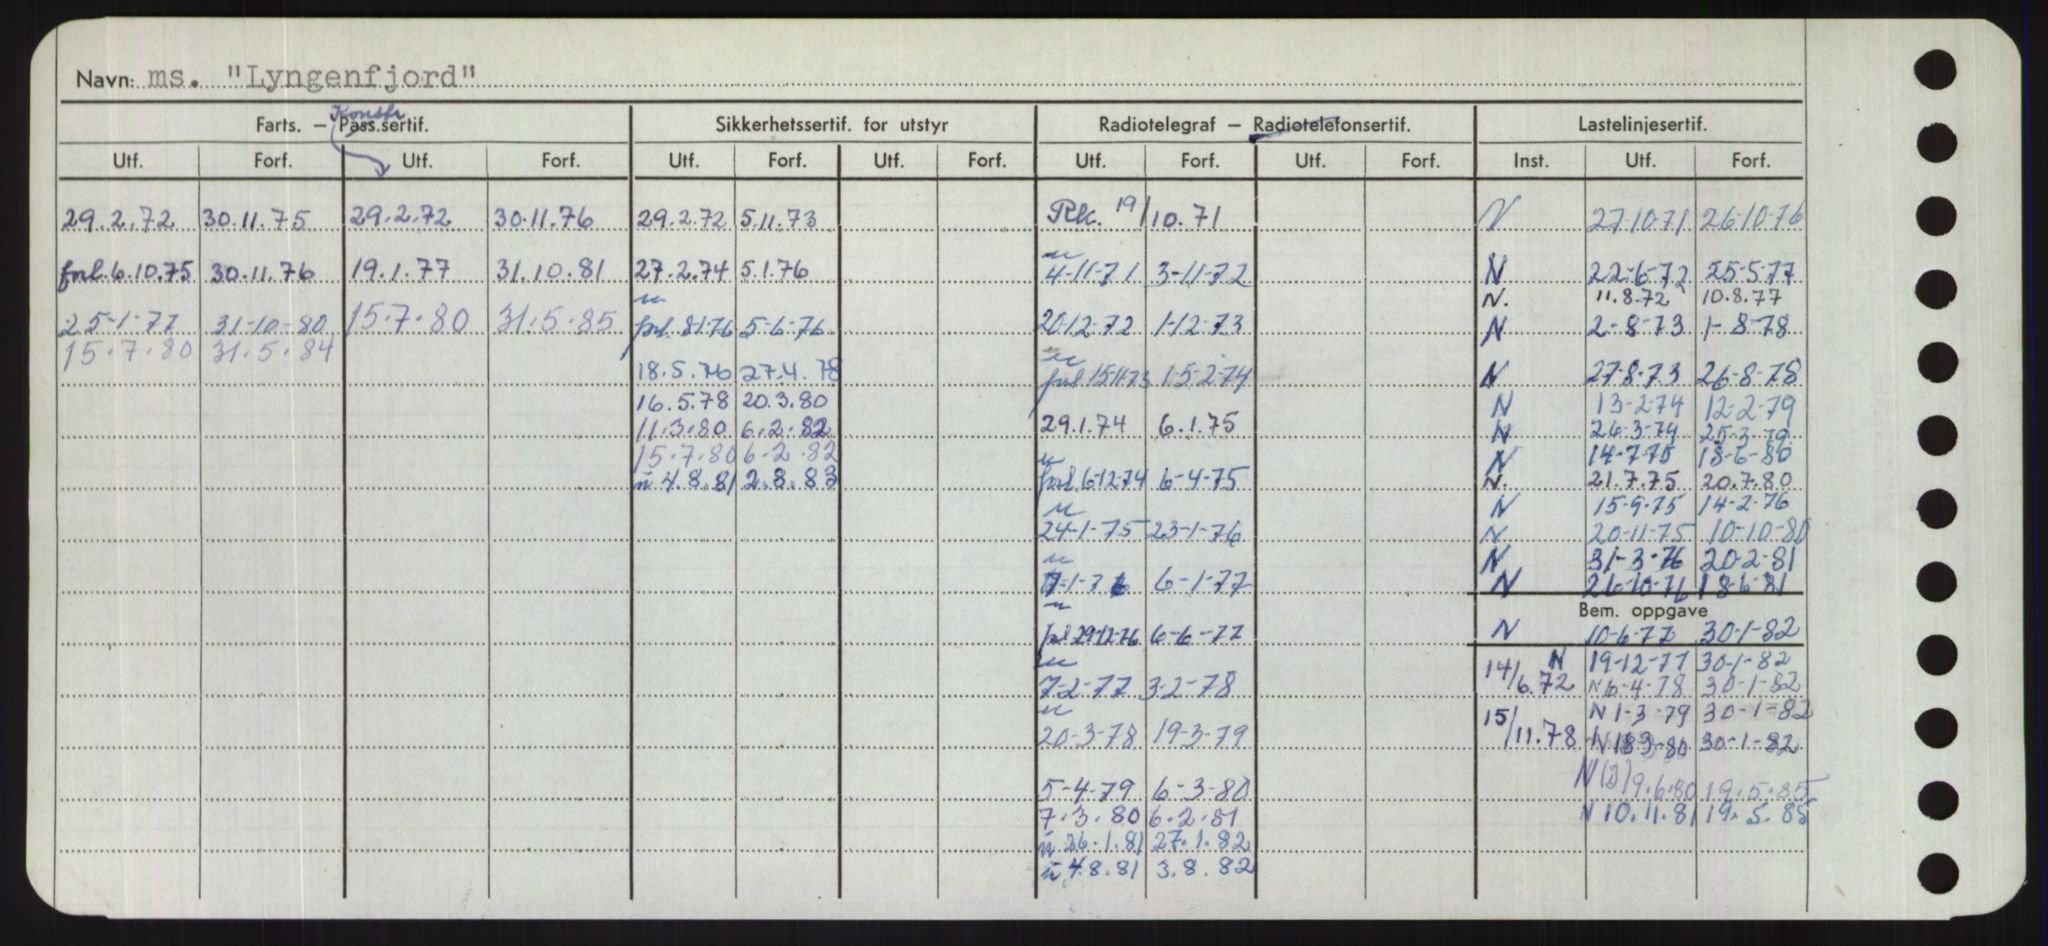 Navn: ms. "Lyngenfjord"
Konstr
Farts. — Pass.sertif. Sikkerhetssertif. for utstyr Radiotelegraf — Radiotelefonsertif. Lastelinjesertif.
Utf. Forf. Utf. Forf. Utf. Forf. Utf. Forf. Utf. Forf. Utf. Forf. Inst. Utf. Forf.
29.2.72 30.11.75 29.2.72 30.11.76 29.2.72 5.11.73 Rk. 19/10.71 N 27-10-71 26-10-76
forl. 6.10.75 30.11.76 19.1.77 31.10.81 27.2.74 5.1.76 4-11-71 3-11-72 N 22-6-72 25-5-77
N. 11.8.72 10.8.77
25-1-77 31-10-80 15.7.80 31.5.85 forl. 8-1-76 5-6-76 20-12-72 1-12-73 N 2-8-73 1-8-78
15.7.80 31.5.84
18.5.76 27.4.78 forl 15-11-73 15-2-74 N 27-8-73 26-8-78
16.5.78 20.3.80 N 13-2-74 12-2-79
11.3.80 6.2.82 29.1.74 6.1.75 N 26-3-74 25-3-79
15.7.80 6.2.82 N 14-7-75 18-6-80
u 4.8.81 2.8.83 forl. 6-12-74 6-4-75 N. 21.7.75 20.7.80
N 15-9-75 14-2-76
24-1-75 23-1-76 N 20-11-75 10-10-80
N 31-3-76 20-2-81
7-1-76 6-1-77 N 26-10-76 18-6-81
Bem. oppgave
forl 29-12-76 6-6-77 N 10-6-77 30-1-82
14/6.72 N 19-12-77 30-1-82
7-2-77 3-2-78 N 6-4-78 30-1-82
15/11.78 N 1-3-79 30-1-82
20-3-78 19-3-79 N 18-3-80 30-1-82
5-4-79 6-3-80 N(D) 9.6.80 19.5.85
7.3.80 6.2.81 N 10.11.81 19.5.85
u 26.1.81 27.1.82
u 4.8.81 3.8.82